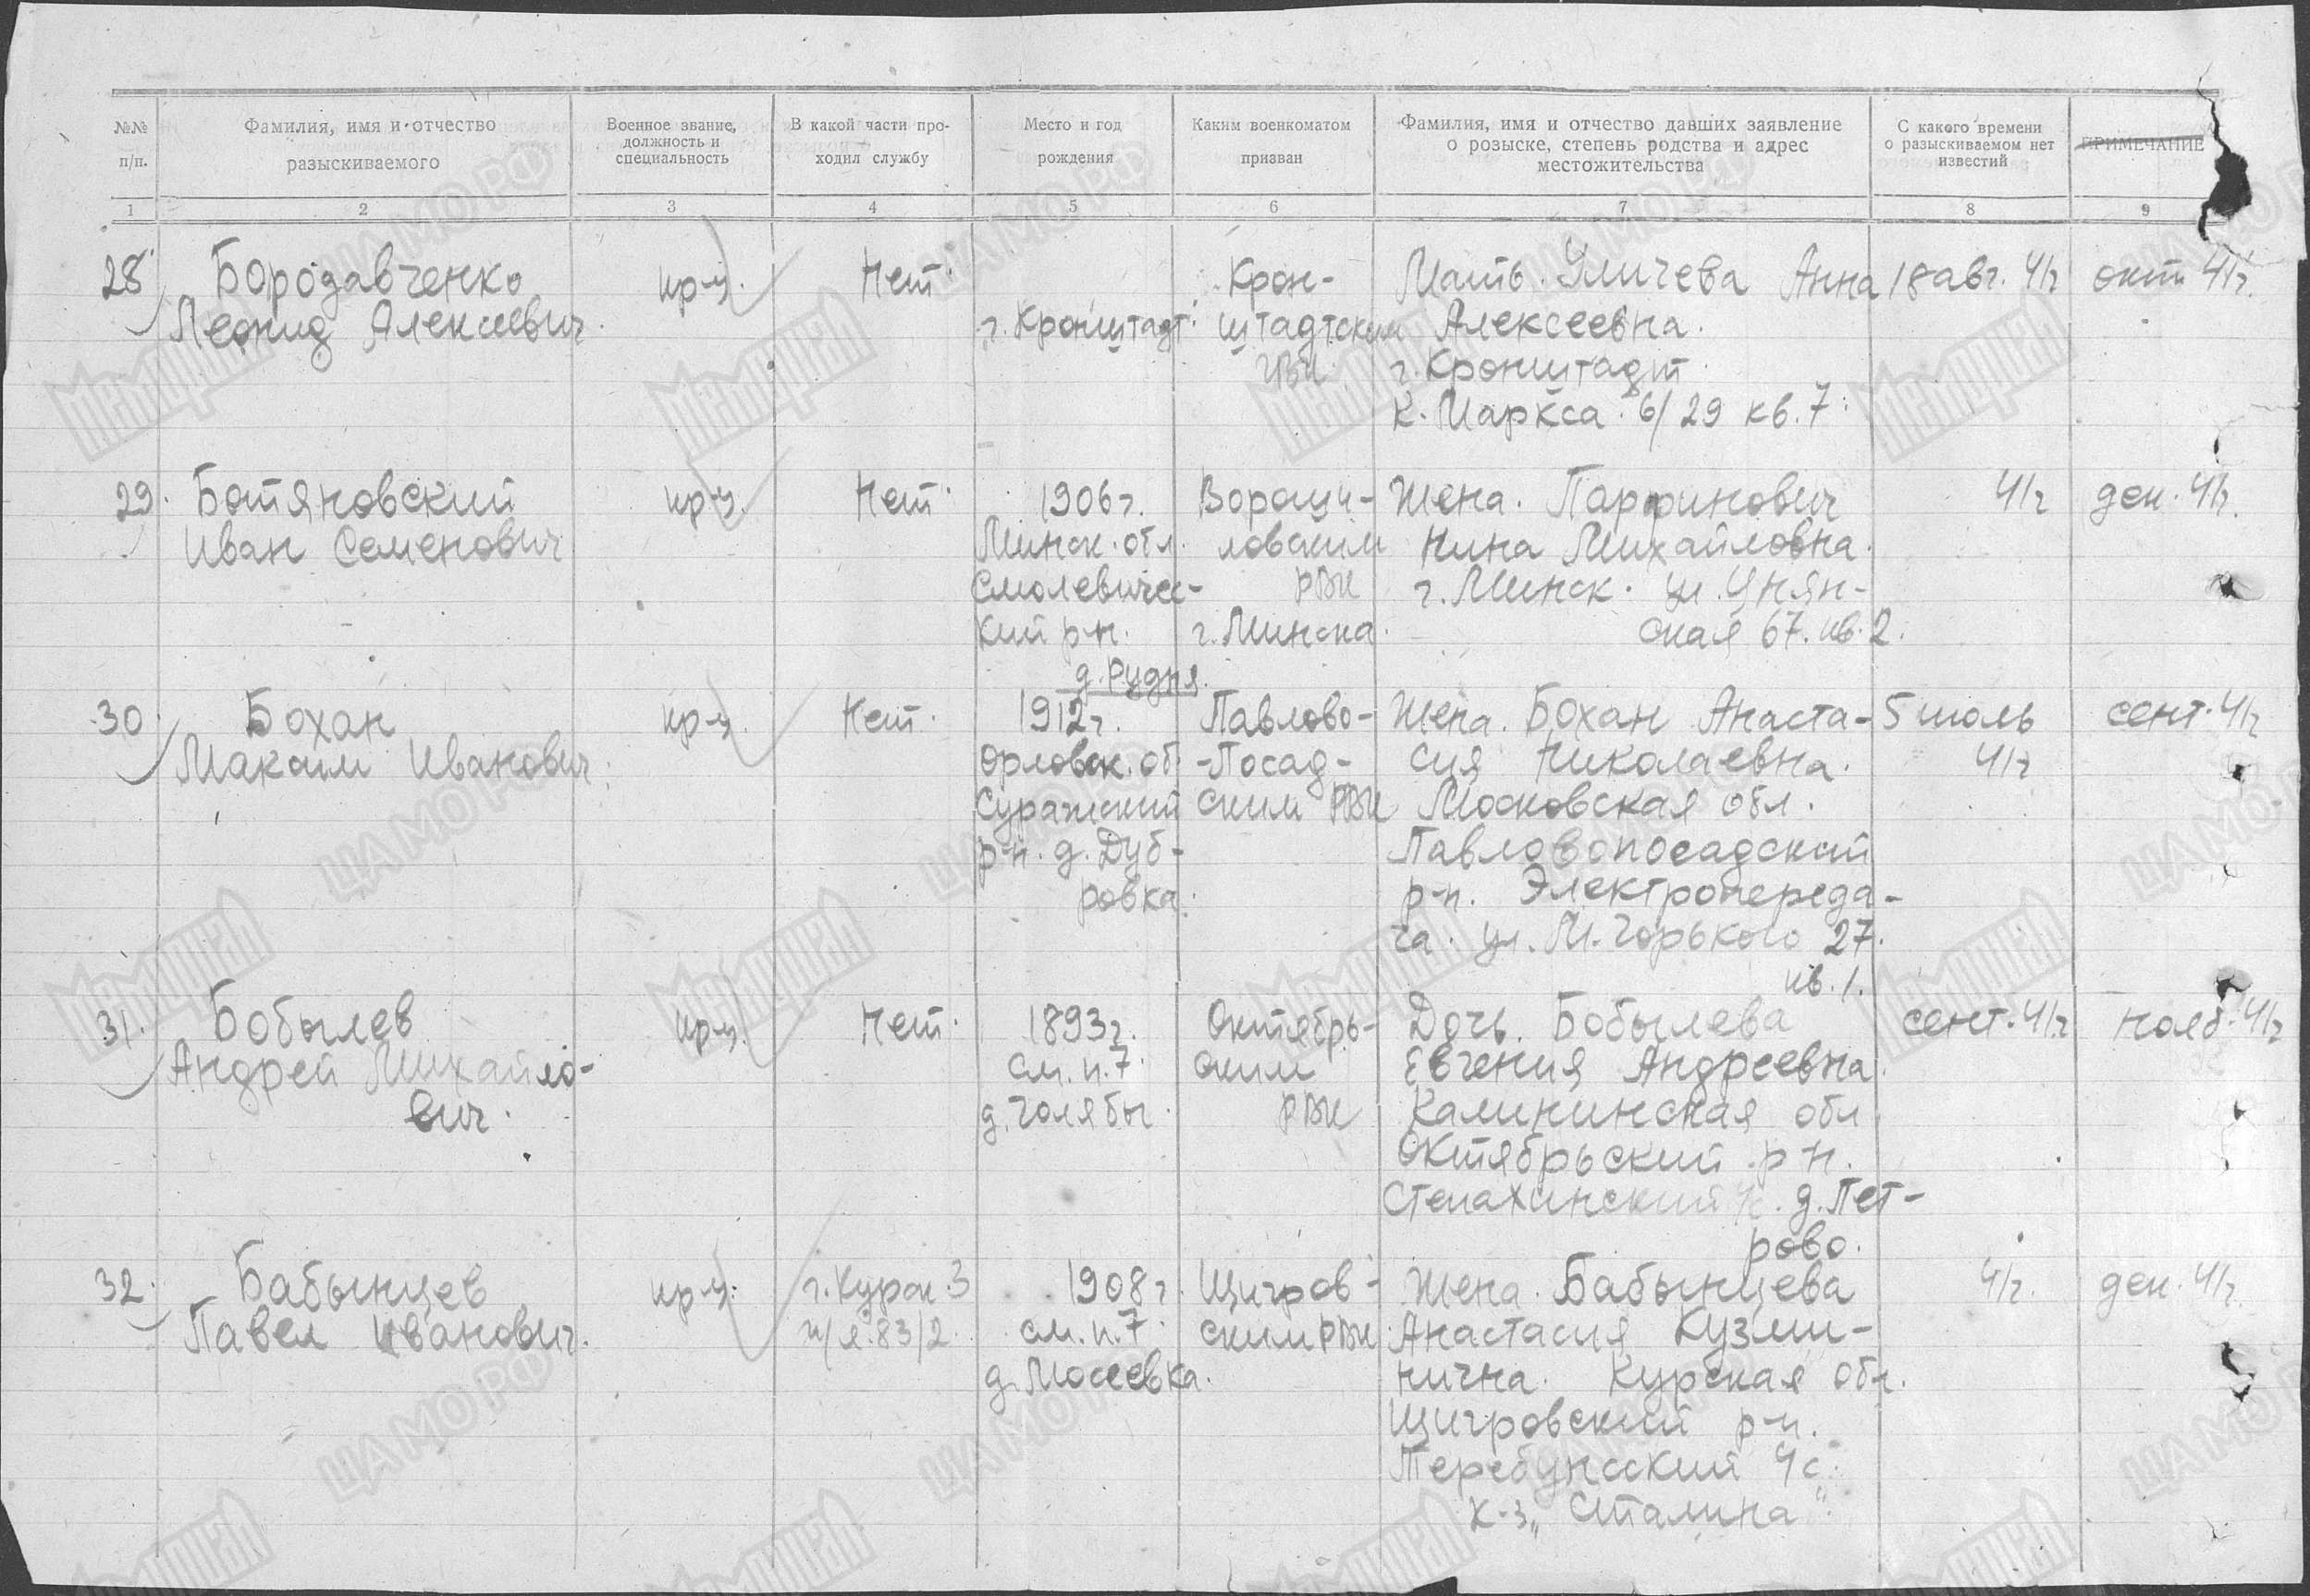 №№ п/п.
Фамилия, имя и отчество
разыскиваемого
Военное звание,
должность и
специальность
В какой части про-
ходил службу
Место и год
рождения
Каким военкоматом
призван
Фамилия, имя и отчество давших заявление
о розыске, степень родства и адрес
местожительства
С какого времени
о разыскиваемом нет
известий
ПРИМЕЧАНИЕ
1 2 3 4 5 6 7 8 9
28
Бородавченко
Леонид Алексеевич.
кр-ц.
Нет.
г. Кронштадт.
Крон-
штадтским
ГВК
Мать. Уличева Анна
Алексеевна.
г. Кронштадт.
К. Маркса. 6/29 кв. 7.
18 авг. 41г
окт. 41г.
29.
Ботяновский
Иван Семенович
кр-ц.
Нет.
1906г.
Минск. обл.
Смолевичес-
кий р-н.
д. Рудня.
Вороши-
ловским
РВК
г. Минска.
Жена. Парфинович
Нина Михайловна.
г. Минск. ул. Цнян-
ская 67. кв. 2.
41г
дек. 41г.
30.
Бохан
Максим Иванович.
кр-ц.
Нет.
1912г.
Орловск. об.
Суражский
р-н. д. Дуб-
ровка.
Павлово-
-Посад-
ским РВК
Жена. Бохан Анаста-
сия Николаевна.
Московская обл.
Павловопосадский
р-н. Электропереда-
ча. ул. М. Горького 27.
кв. 1.
5 июль
41г
сент. 41г
31.
Бобылев
Андрей Михайло-
вич.
кр-ц.
Нет.
1893г.
см. п. 7.
д. Голябы.
Октябрь-
ским
РВК
Дочь. Бобылева
Евгения Андреевна.
Калининская обл
Октябрьский р-н.
д. Пет-
рово.
сент. 41г
нояб. 41г
32.
Бабынцев
Павел Иванович.
кр-ц.
г. Курск. 3
п/я. 83/2.
1908г.
см. п. 7.
д. Мосеевка.
Щигров-
ским РВК
Жена. Бабынцева
Анастасия Кузми-
нична. Курская обл.
Щигровский р-н.
к-з „Сталина"
41г.
дек. 41г.
Мемориал
ЦАМО РФ